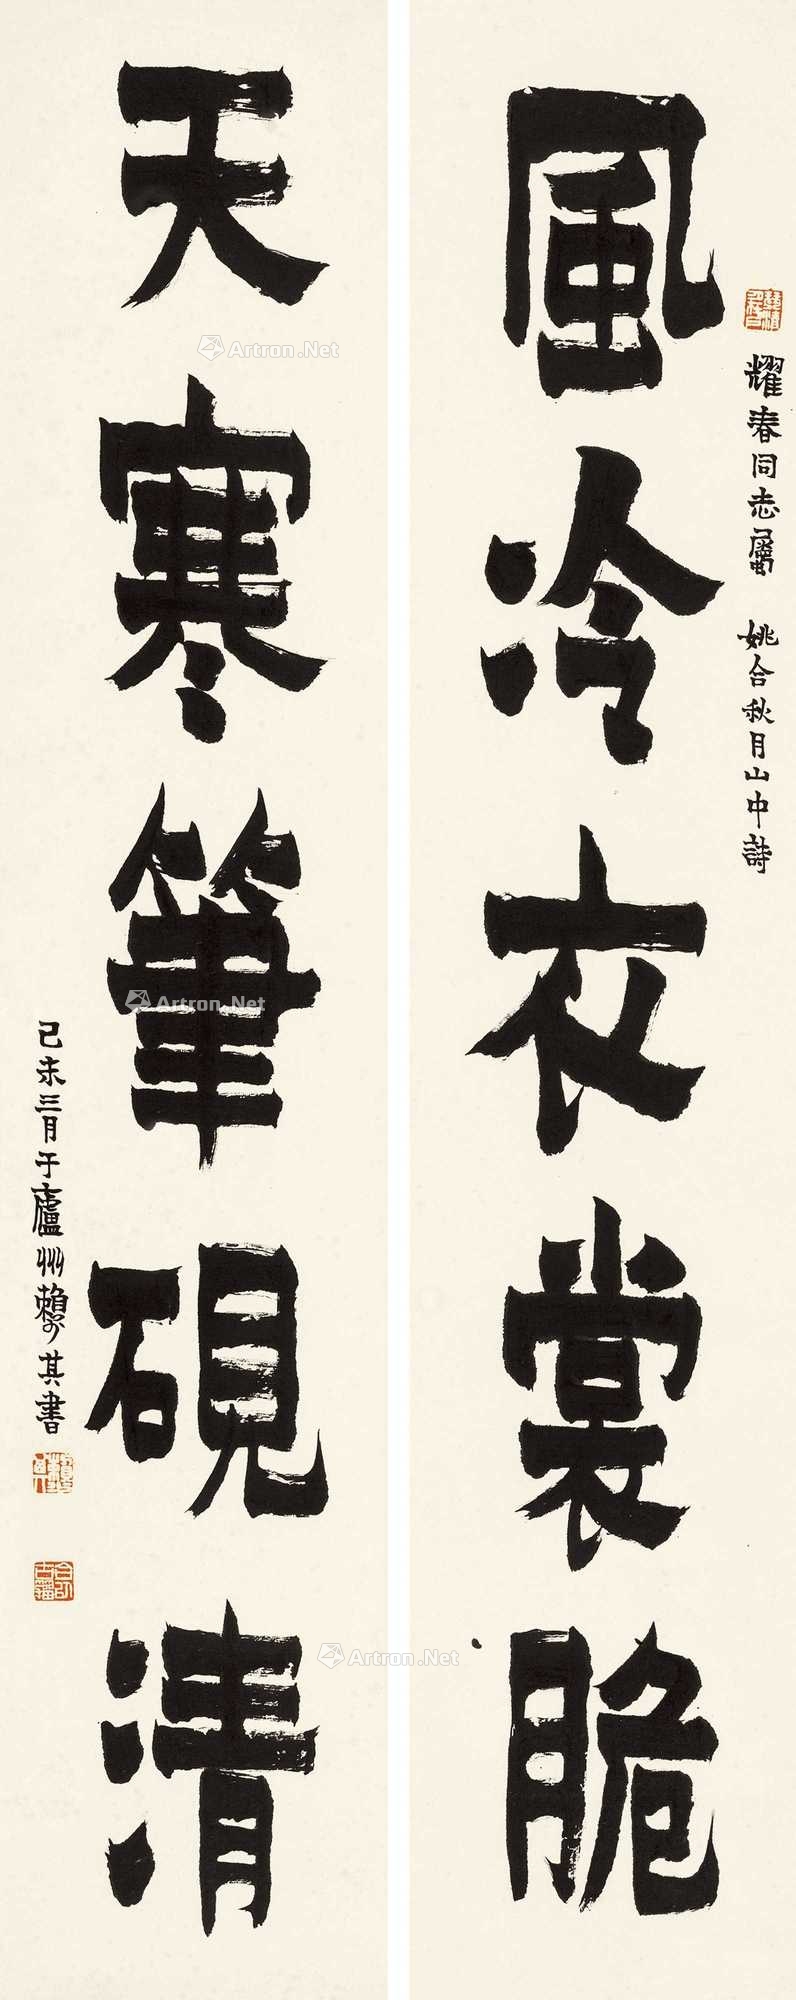 風冷衣裳脆
耀春同志屬 姚合秋月山中詩
天寒筆硯清
己未三月于廬州賴少其書
Artron.Net
Artron.Net
Artron.Net